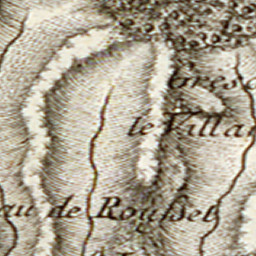 Gres
le Villa
au de Rousset